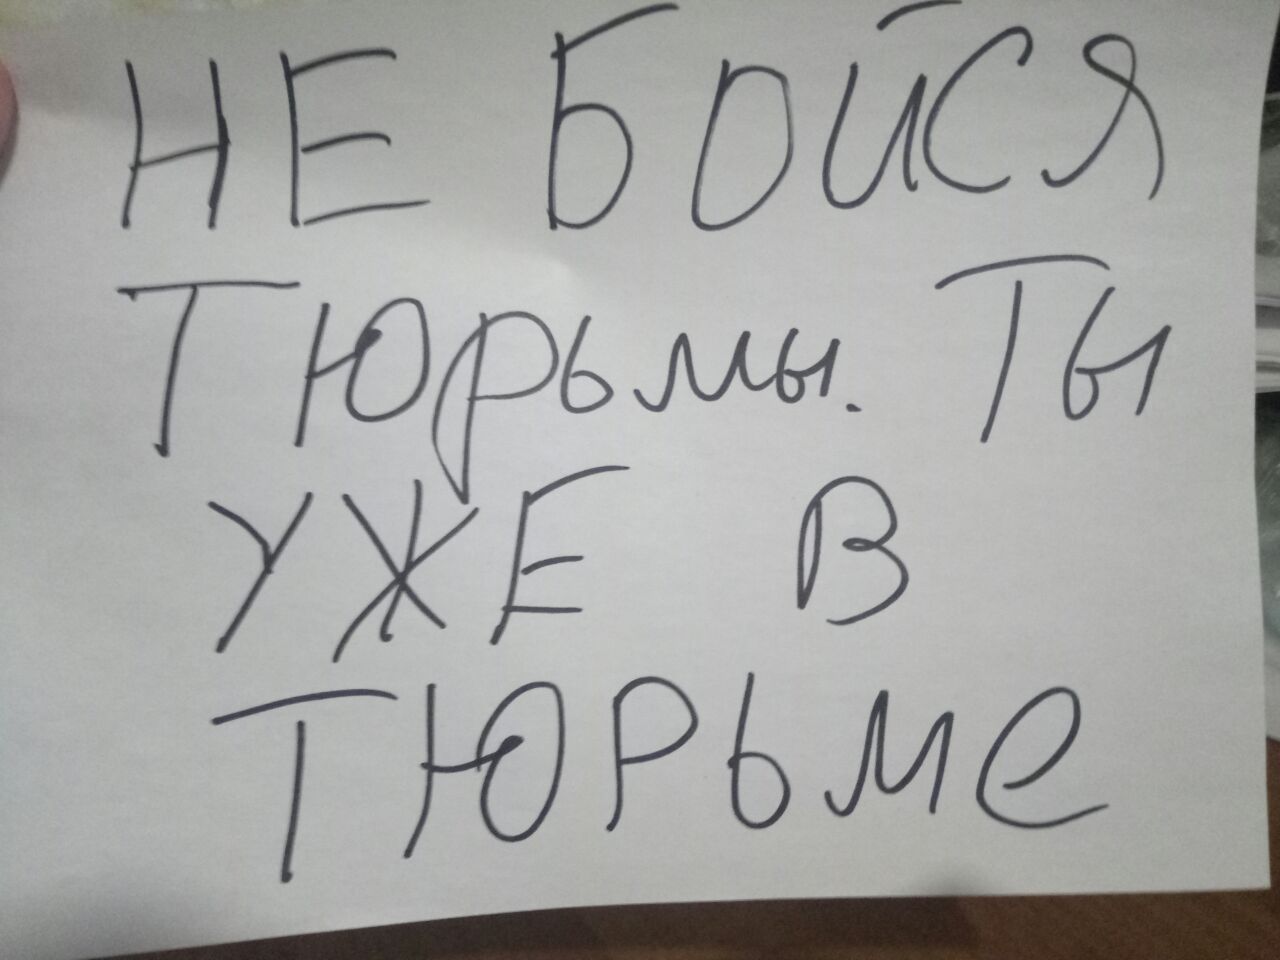 НЕ БОЙСЯ
ТЮРЬМЫ. ТЫ
УЖЕ В
ТЮРЬМЕ